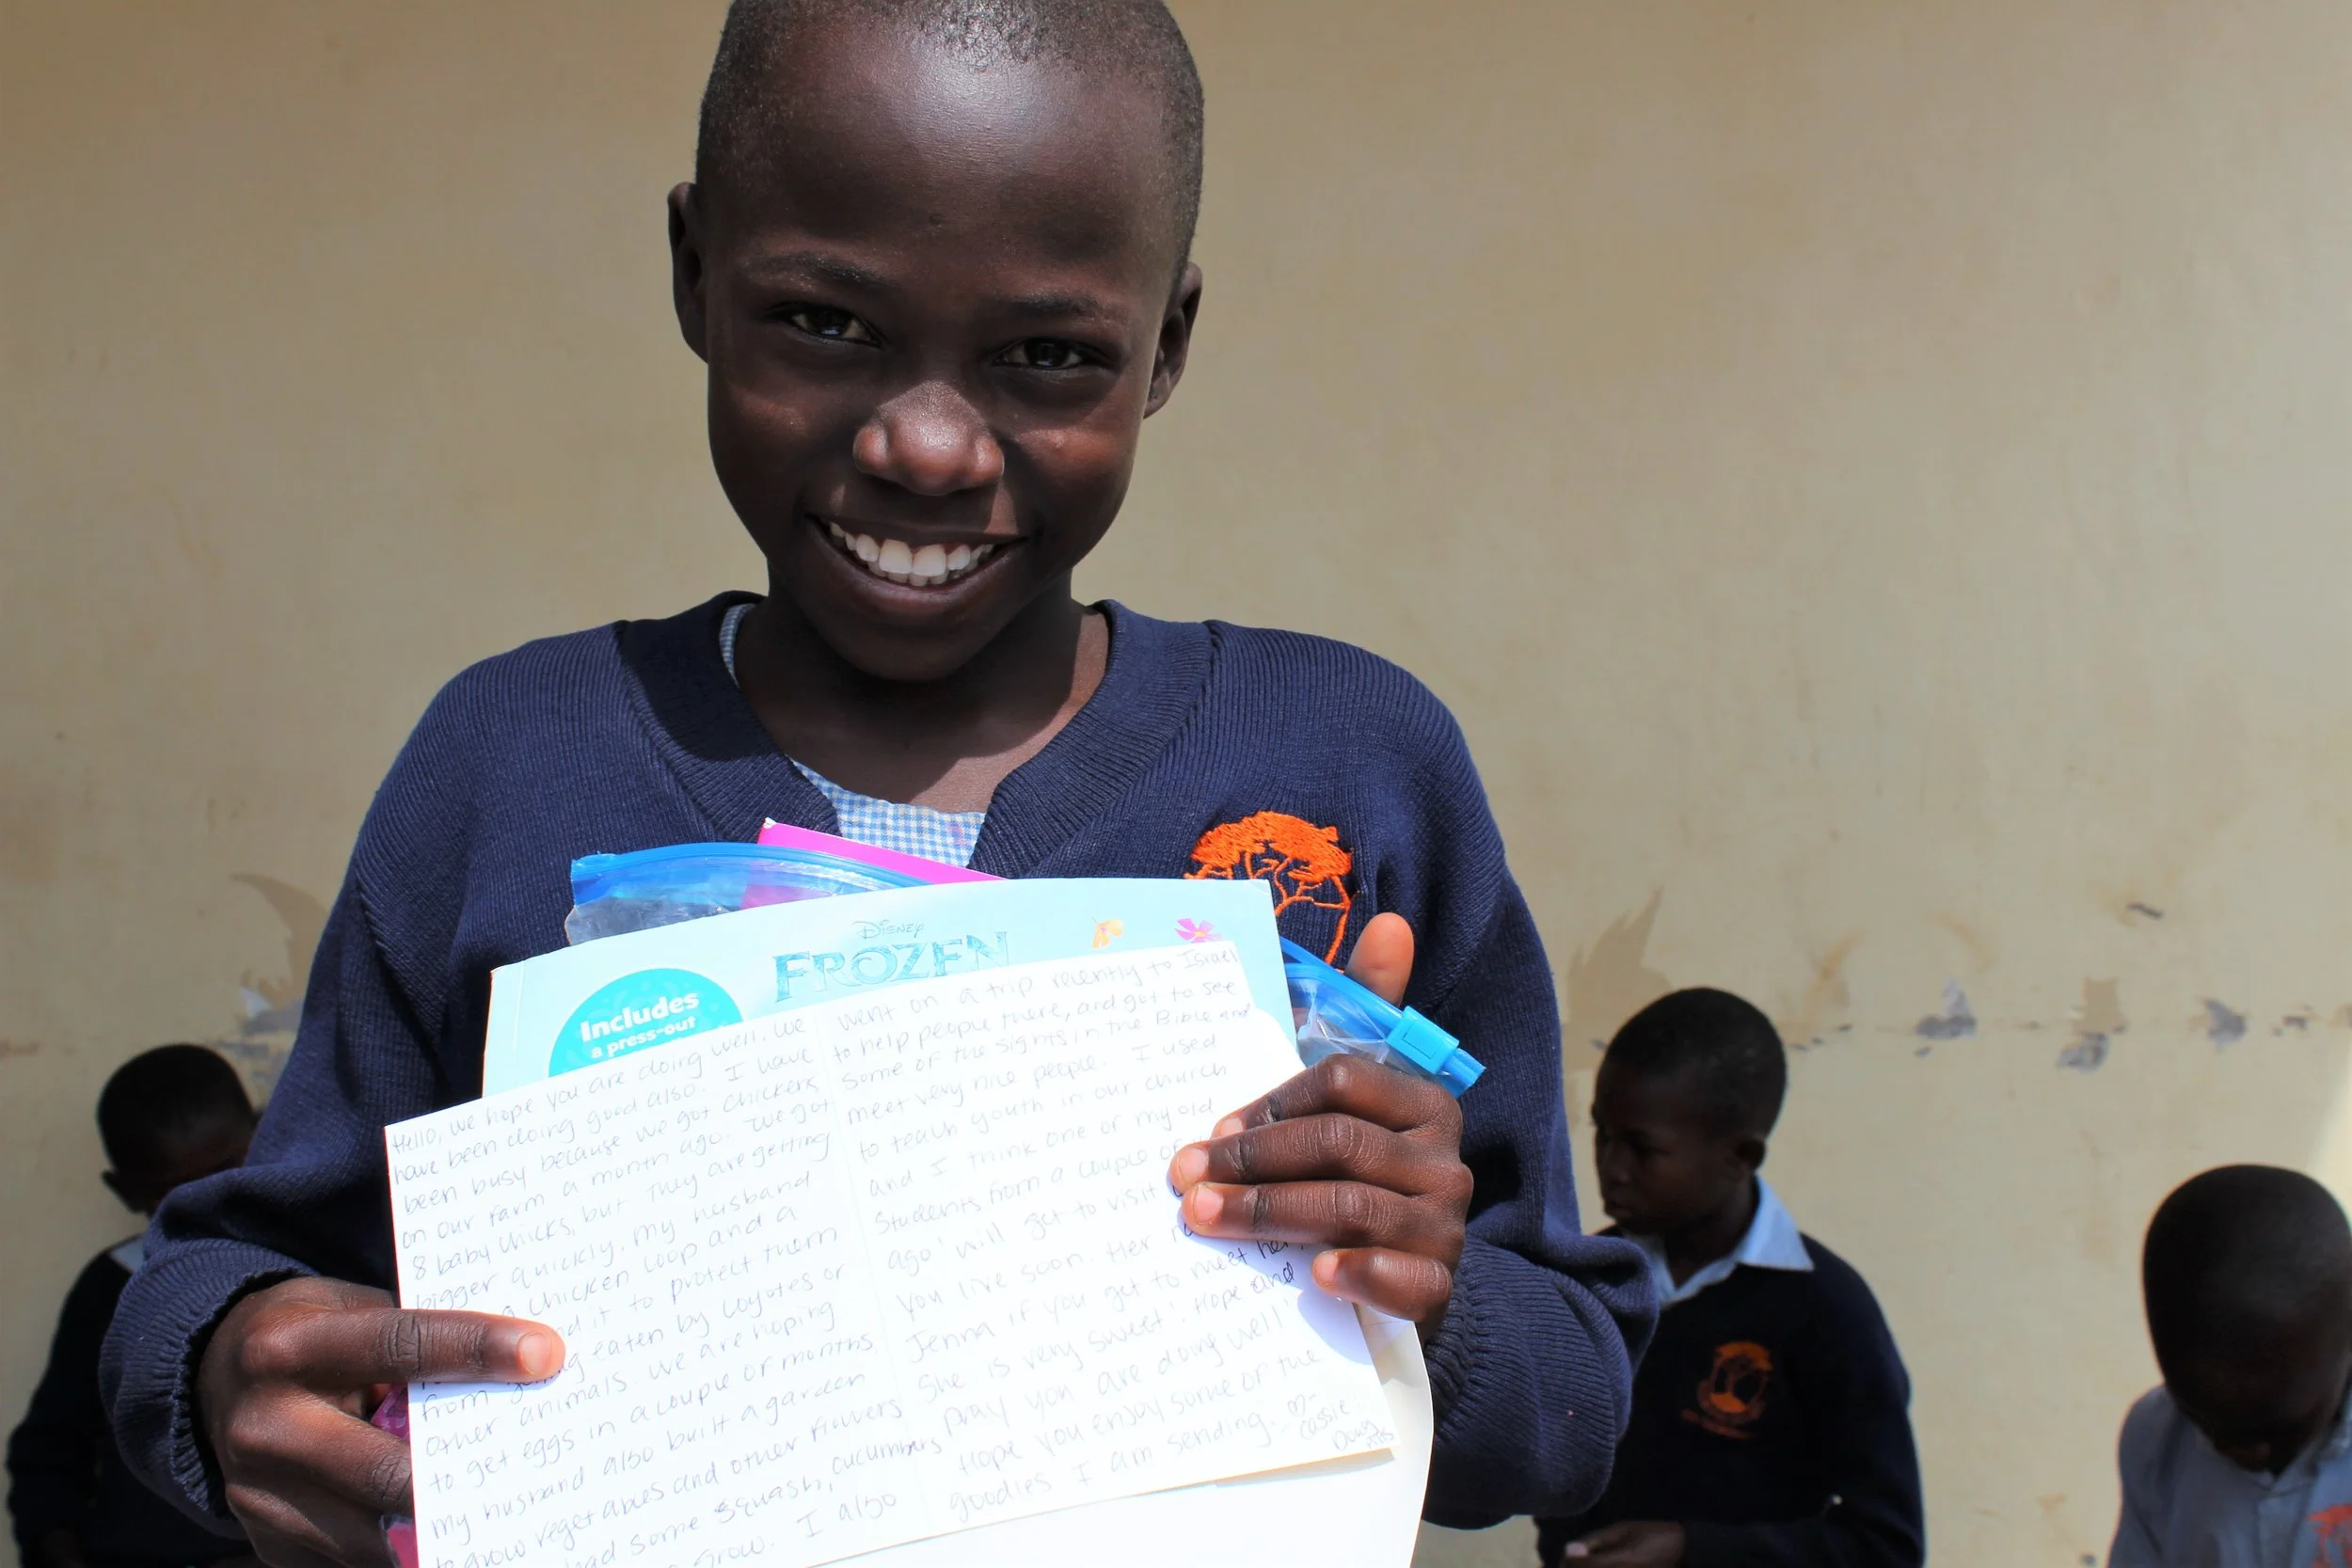 Disney
FROZEN
Includes
a press-out
Hello, we hope you are doing well. We
have been doing good also. I have
been busy because we got chickens
on our farm a month ago. We got
8 baby chicks, but they are getting
bigger quickly. My husband
a chicken coop and a
it to protect them
from eaten by coyotes or
other animals. We are hoping
to get eggs in a couple of months
my husband also built a garden
to grow vegetables and other flowers
had some squash, cucumbers
grow. I also
went on a trip recently to Israel
to help people there, and got to see
some of the sights in the Bible and
meet very nice people. I used
to teach youth in our church
and I think one of my old
students from a couple of
ago will get to visit
you live soon. Her
Jenna if you get to meet her,
she is very sweet! Hope and
pray you are doing well!
Hope you enjoy some of the
goodies I am sending.
Cassie
Doug